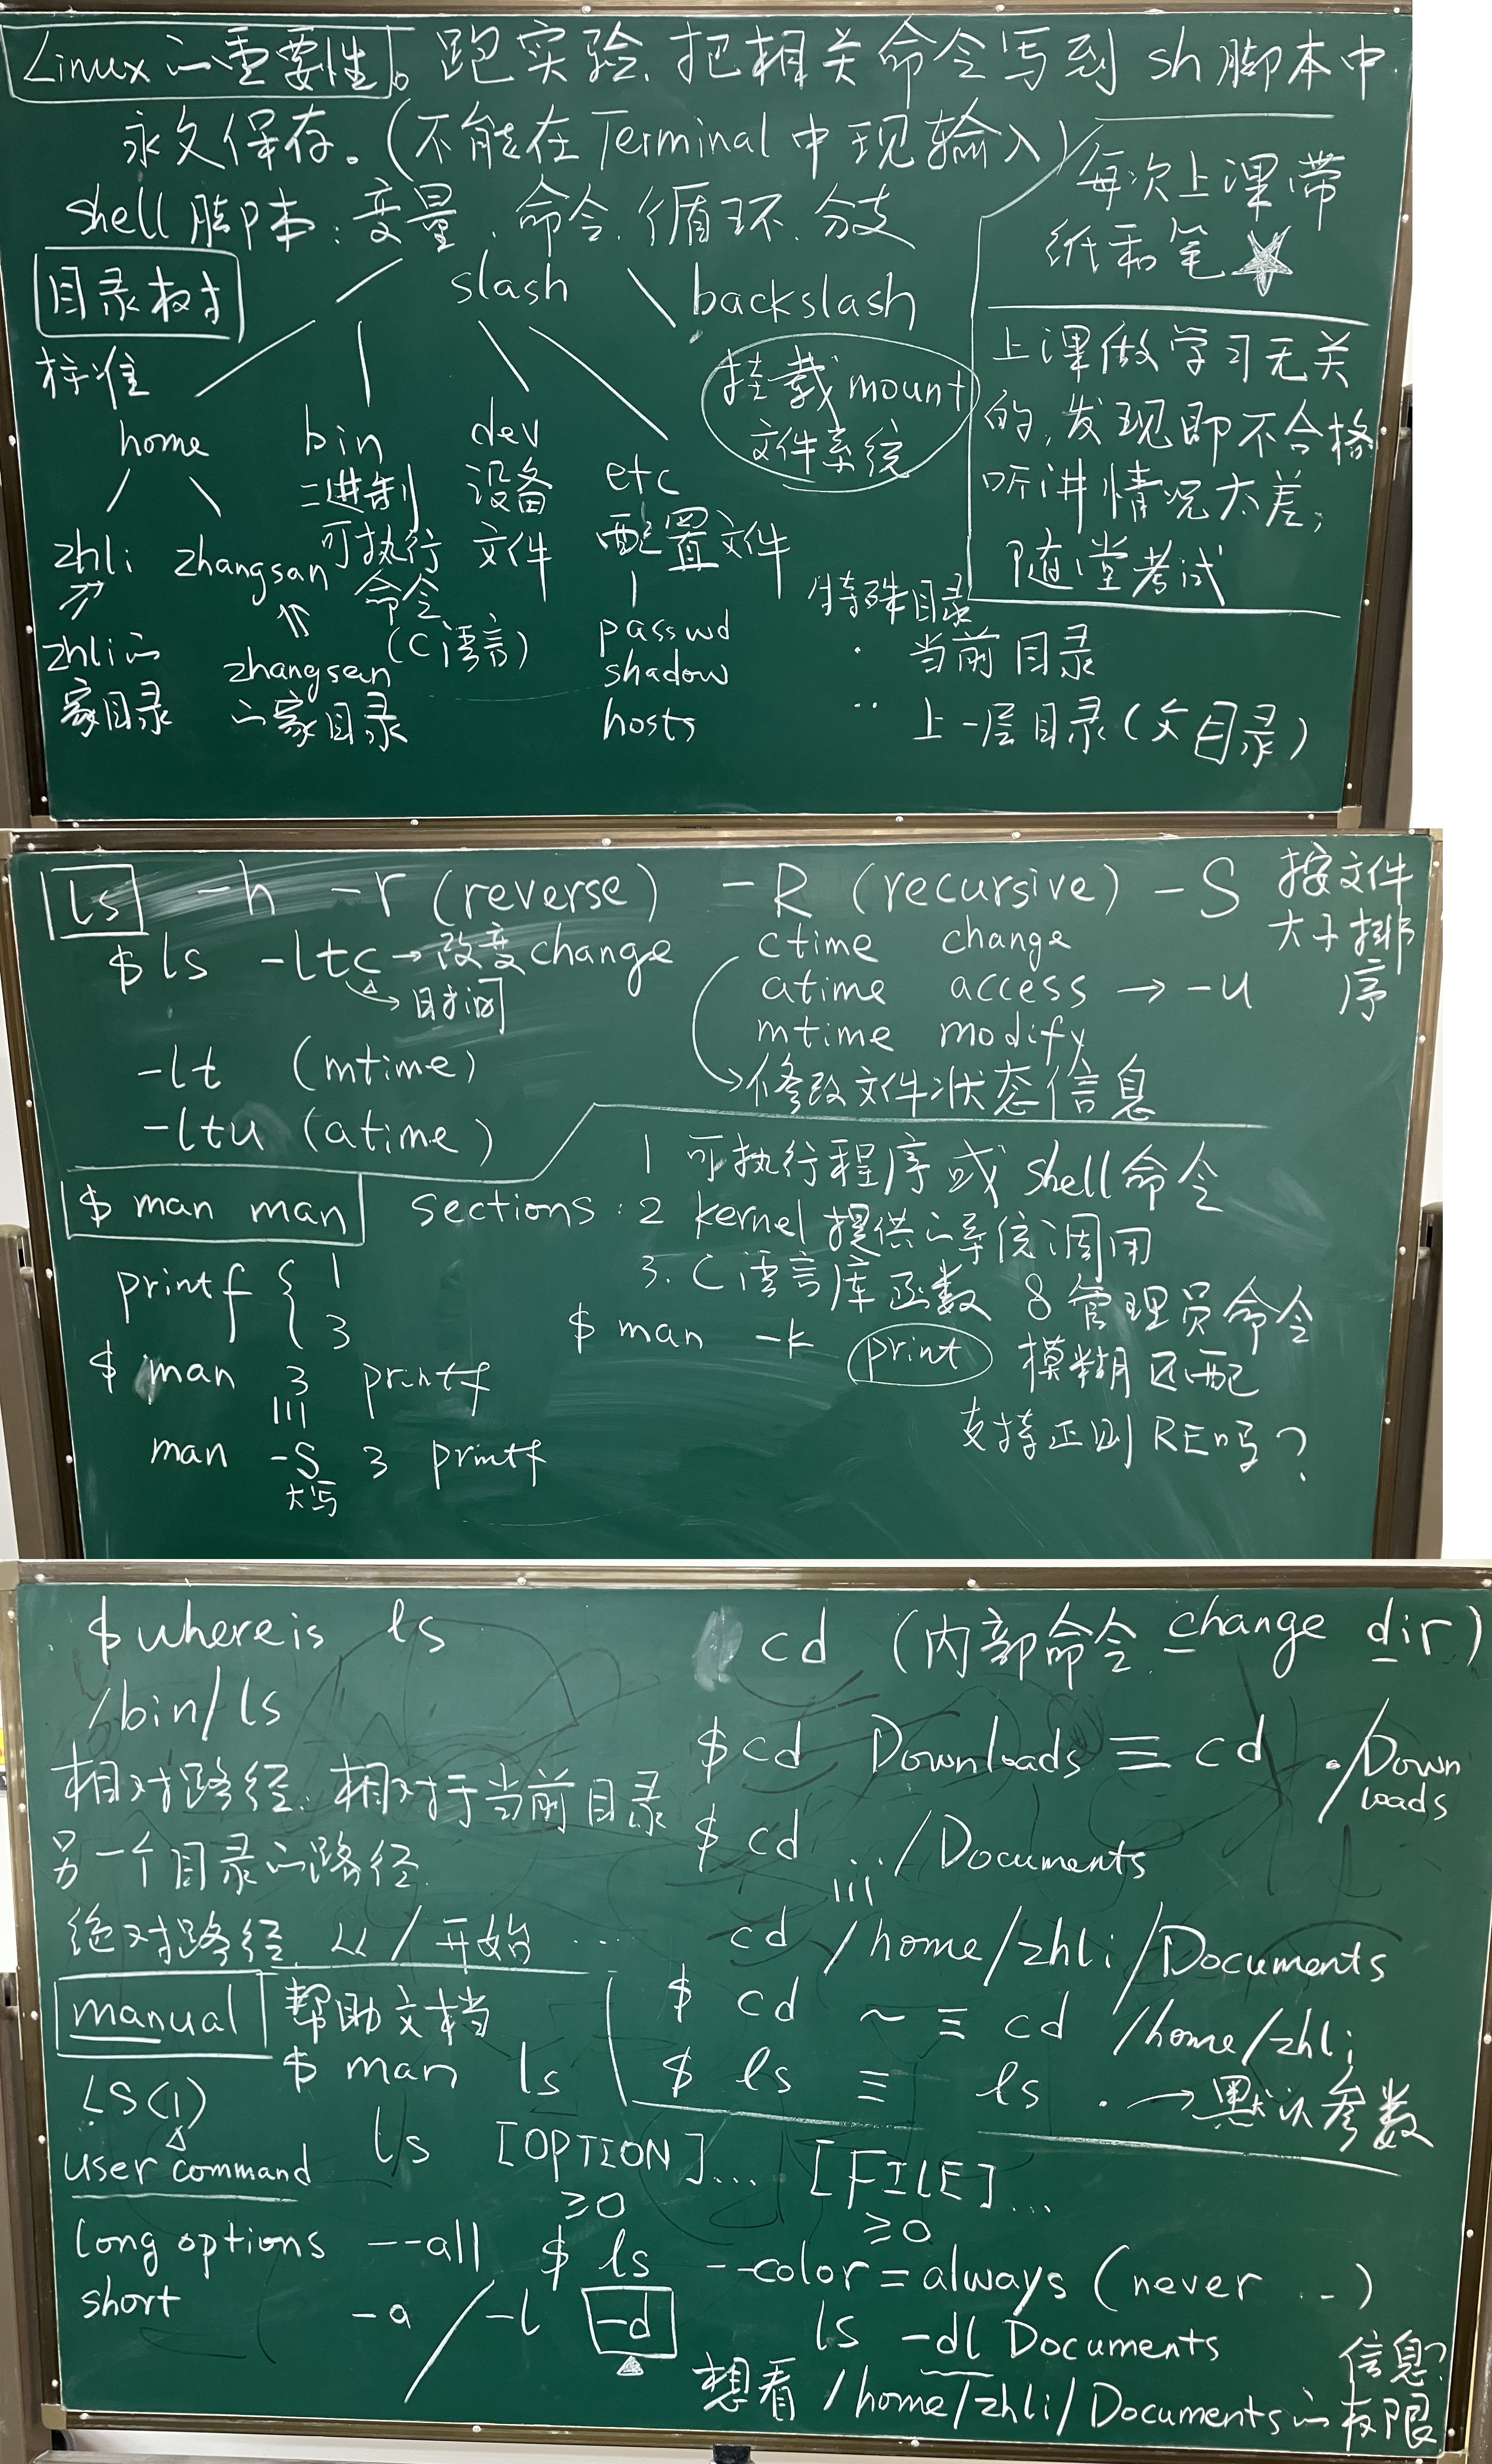 Linux的重要性。跑实验、把相关命令写到 sh 脚本中
永久保存。(不能在 Terminal 中现输入)
shell 脚本:变量、命令、循环、分支
每次上课带
纸和笔 ☆
目录树
/ slash \ backslash
标准
挂载 mount
文件系统
上课做学习无关
的,发现即不合格
听讲情况太差,
随堂考试
home bin dev etc
二进制
可执行
命令
(C语言)
设备
文件
配置文件
zhli zhangsan
zhli的
家目录
zhangsan
的家目录
passwd
shadow
hosts
特殊目录
. 当前目录
.. 上一层目录(父目录)
ls -h -r (reverse) -R (recursive) -S 按文件
大小排
序
$ ls -ltc → 改变 change
→ 时间
ctime change
atime access → -u
mtime modify
→修改文件状态信息
-lt (mtime)
-ltu (atime)
$ man man sections: 1 可执行程序或 shell 命令
2 kernel 提供的系统调用
3. C语言库函数 8 管理员命令
printf { 1
3
$ man -k print 模糊匹配
支持正则 RE吗?
$ man 3 printf
man -S 3 printf
大写
$ whereis ls
/bin/ls
相对路径:相对于当前目录
另一个目录的路径.
绝对路径 以 / 开始 ...
cd (内部命令 change dir)
$ cd Downloads ≡ cd ./Down
loads
$ cd ../Documents
cd /home/zhli/Documents
$ cd ~ ≡ cd /home/zhli
$ ls ≡ ls . → 默认参数
manual 帮助文档
$ man ls
LS(1)
user command
ls [OPTION]... [FILE]...
≥0 ≥0
long options --all $ ls --color=always (never ...)
short -a / -l -d
ls -dl Documents
想看 /home/zhli/Documents的权限
信息?